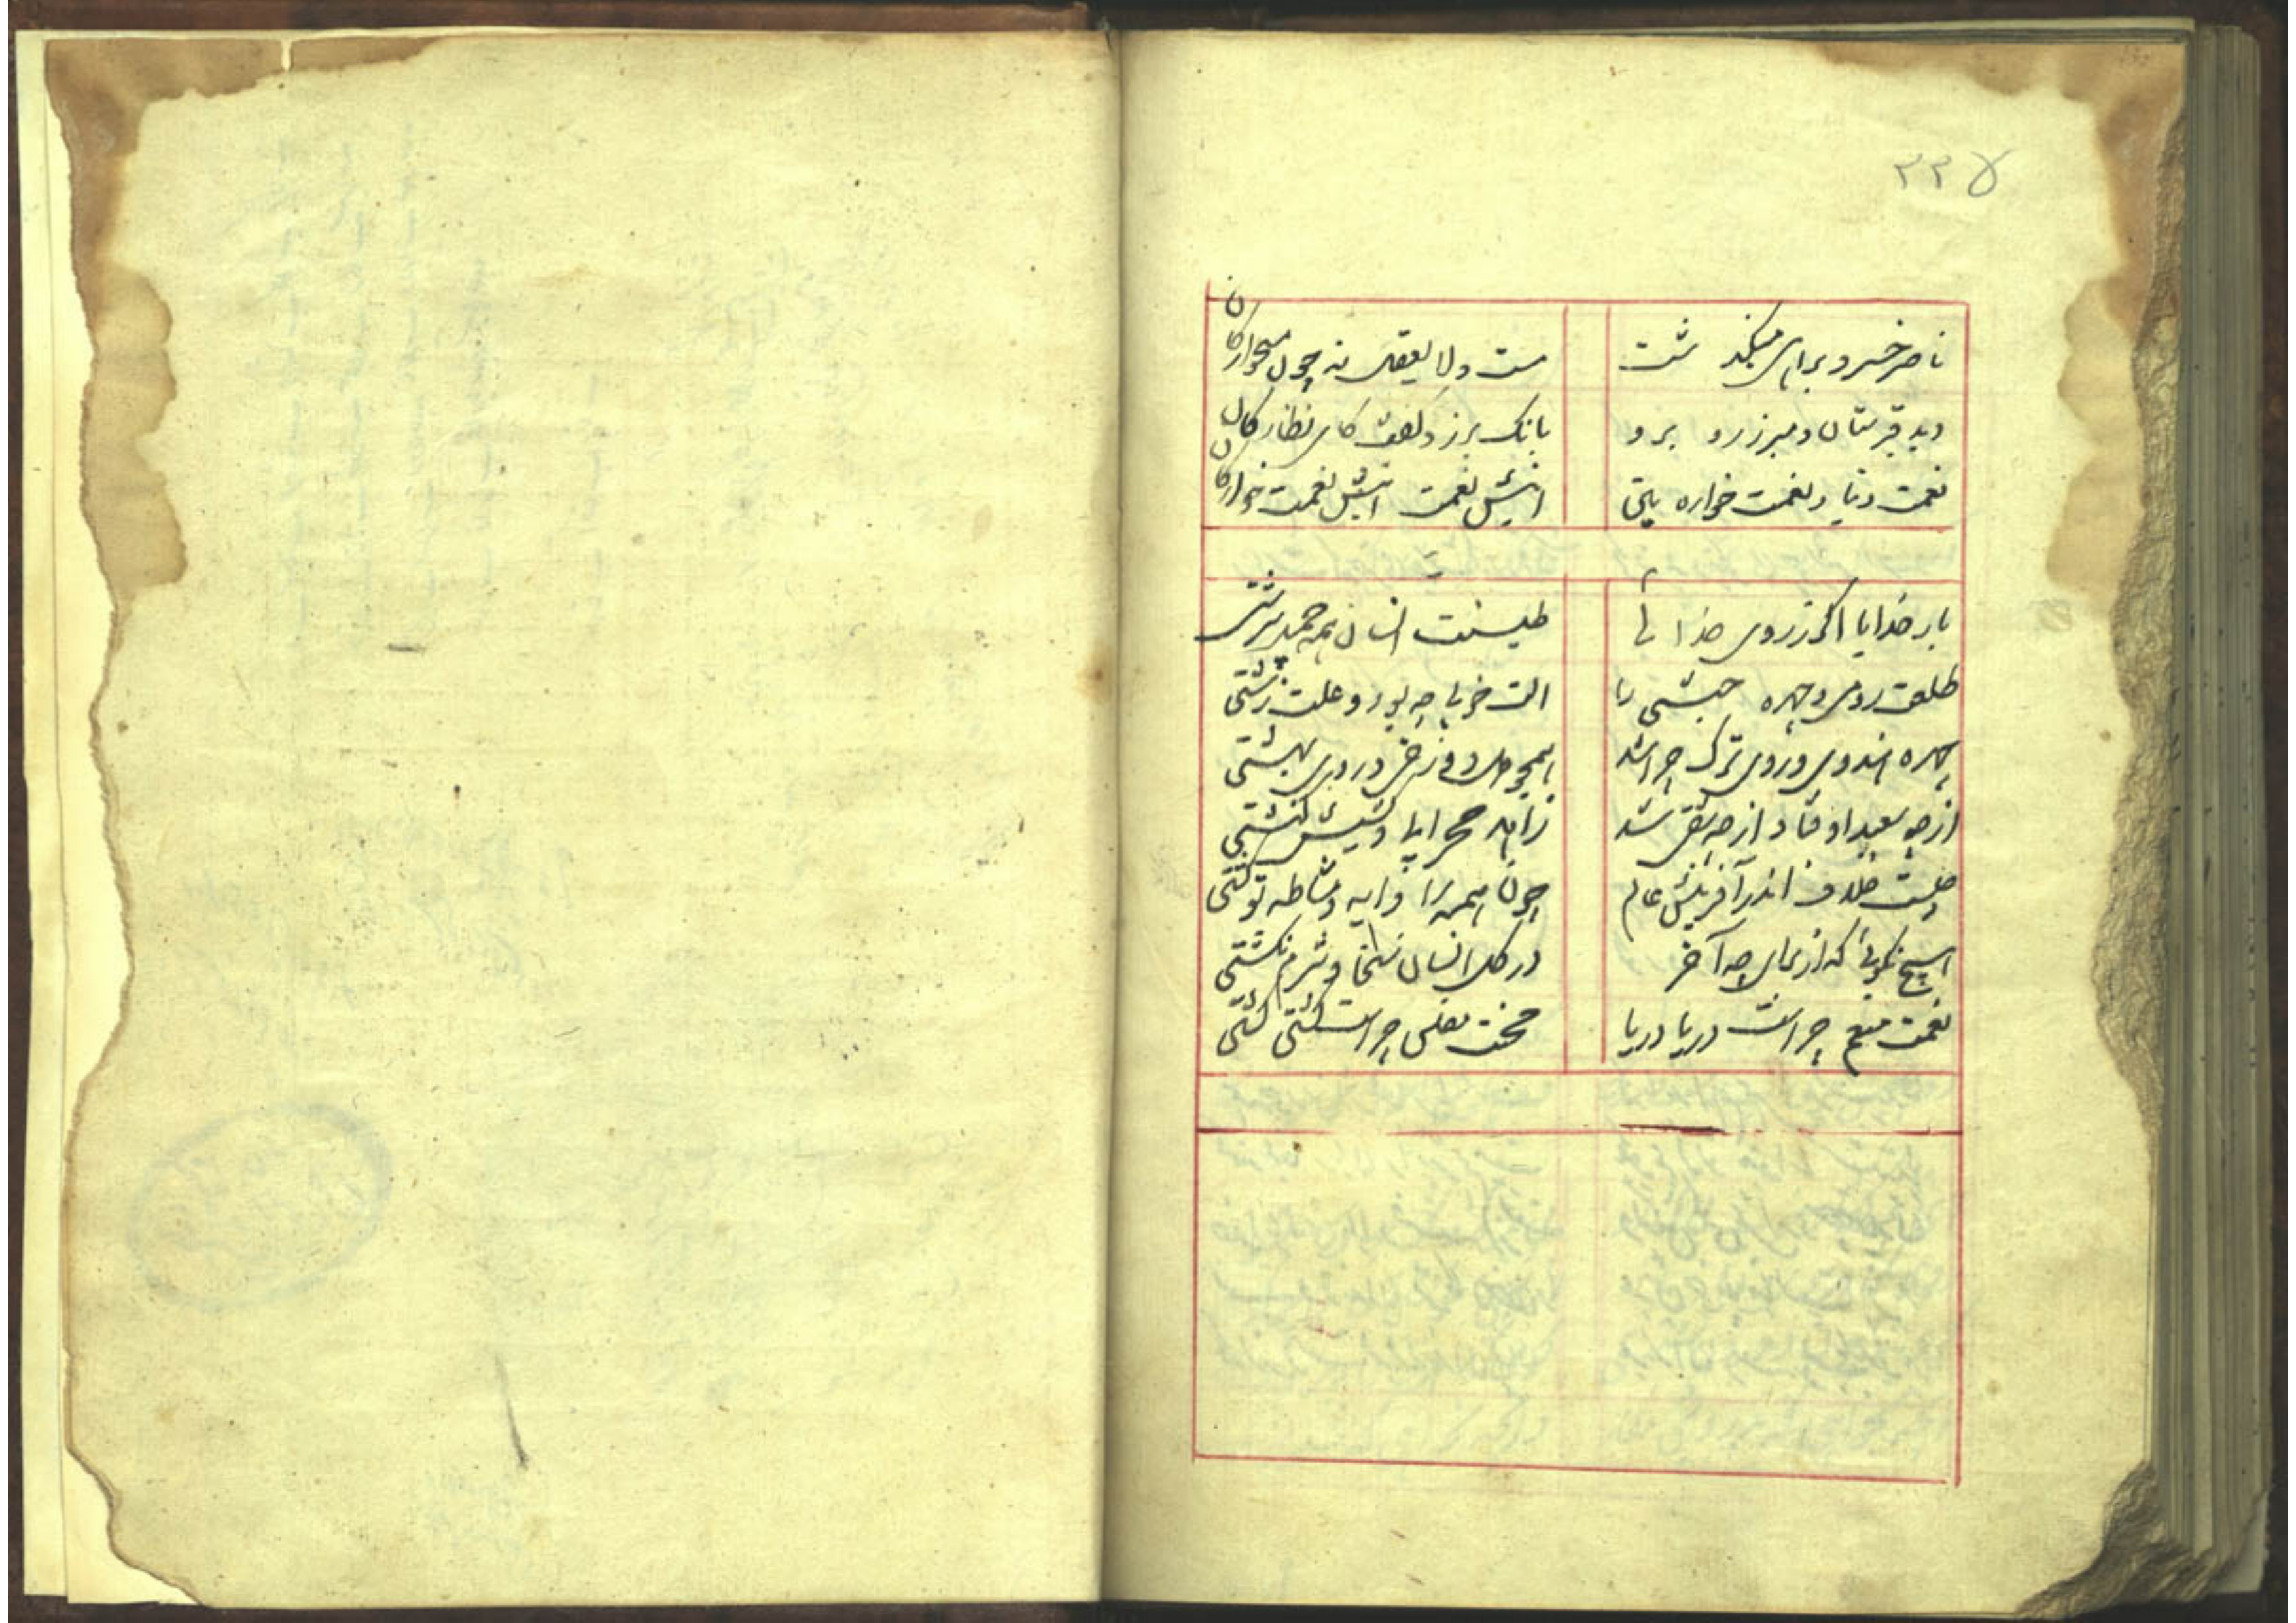 ۲۲۵
ناصر خسرو براهی میگذشت	مست و لا یعقل نه چون میخوارکان
دید قبرستان و مبرز رو برو	بانک برزد گفت کای نظارکان
نعمت دنیا و نعمت خواره بین	اینش نعمت اینش نعمت خوارکان
بار خدایا اگر ز روی خدائی	طینت انسان همه جمیل سرشتی
طلعت رومی و چهره حبشی را	الت خوبی چه بود و علت زشتی
چهره هندوی و روی ترک چرا شد	همچو دل دوزخی و روی بهشتی
از چه سعید اوفتاد از چه شقی شد	زاهد محرابی و کشیش کنشتی
چیست خلاف اندر آفرینش عالم	چون همه را دایه و مشاطه تو کشتی
در کل انسان
نعمت منعم چراست دریا دریا	محنت مفلس چراست کشتی کشتی